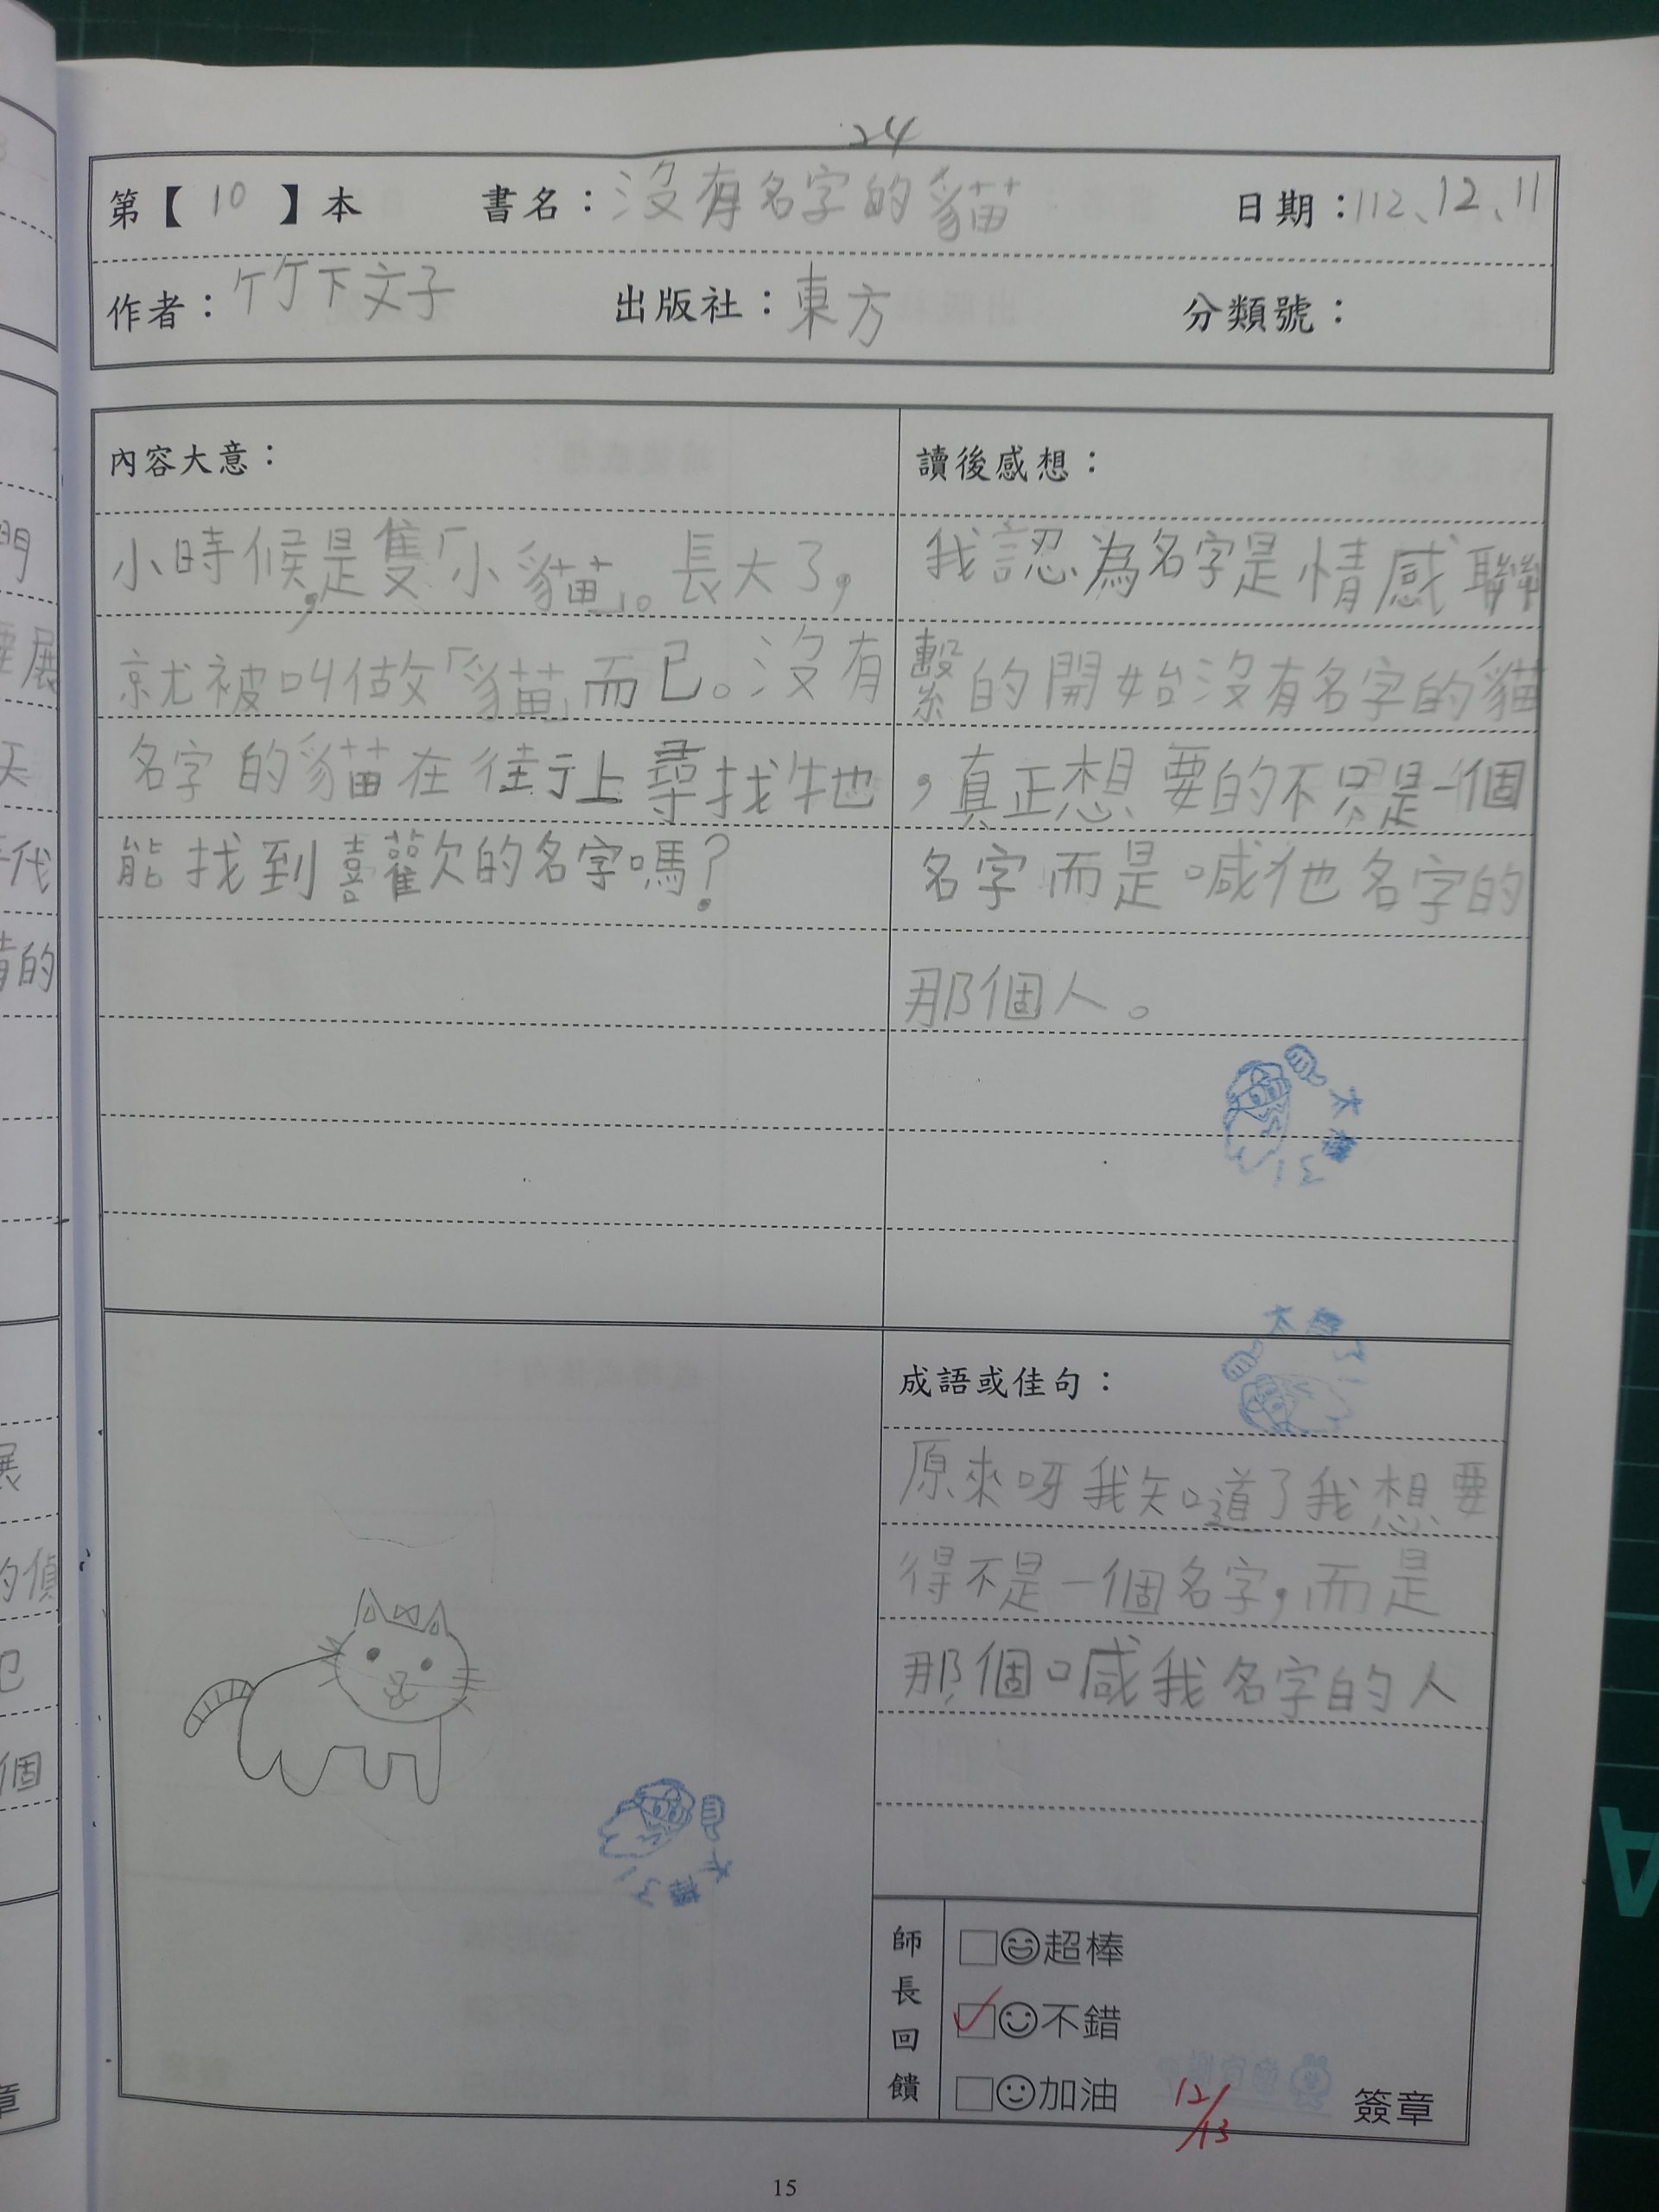 24
第【 10 】本 書名：沒有名字的貓 日期：112、12、11
作者：竹下文子 出版社：東方 分類號：
內容大意：
小時候，是隻「小貓」。長大了，
就被叫做「貓」而已。沒有
名字的貓在街上尋找牠
能找到喜歡的名字嗎？
讀後感想：
我認為名字是情感聯
繫的開始沒有名字的貓
，真正想要的不只是一個
名字而是喊他名字的
那個人。
太棒了
太棒了
成語或佳句：
原來呀我知道了我想要
得不是一個名字，而是
那個喊我名字的人
太棒了
師長回饋
超棒
不錯
加油
12/13
簽章
15
門
展
天
代
的
展
的偵
個
章
A